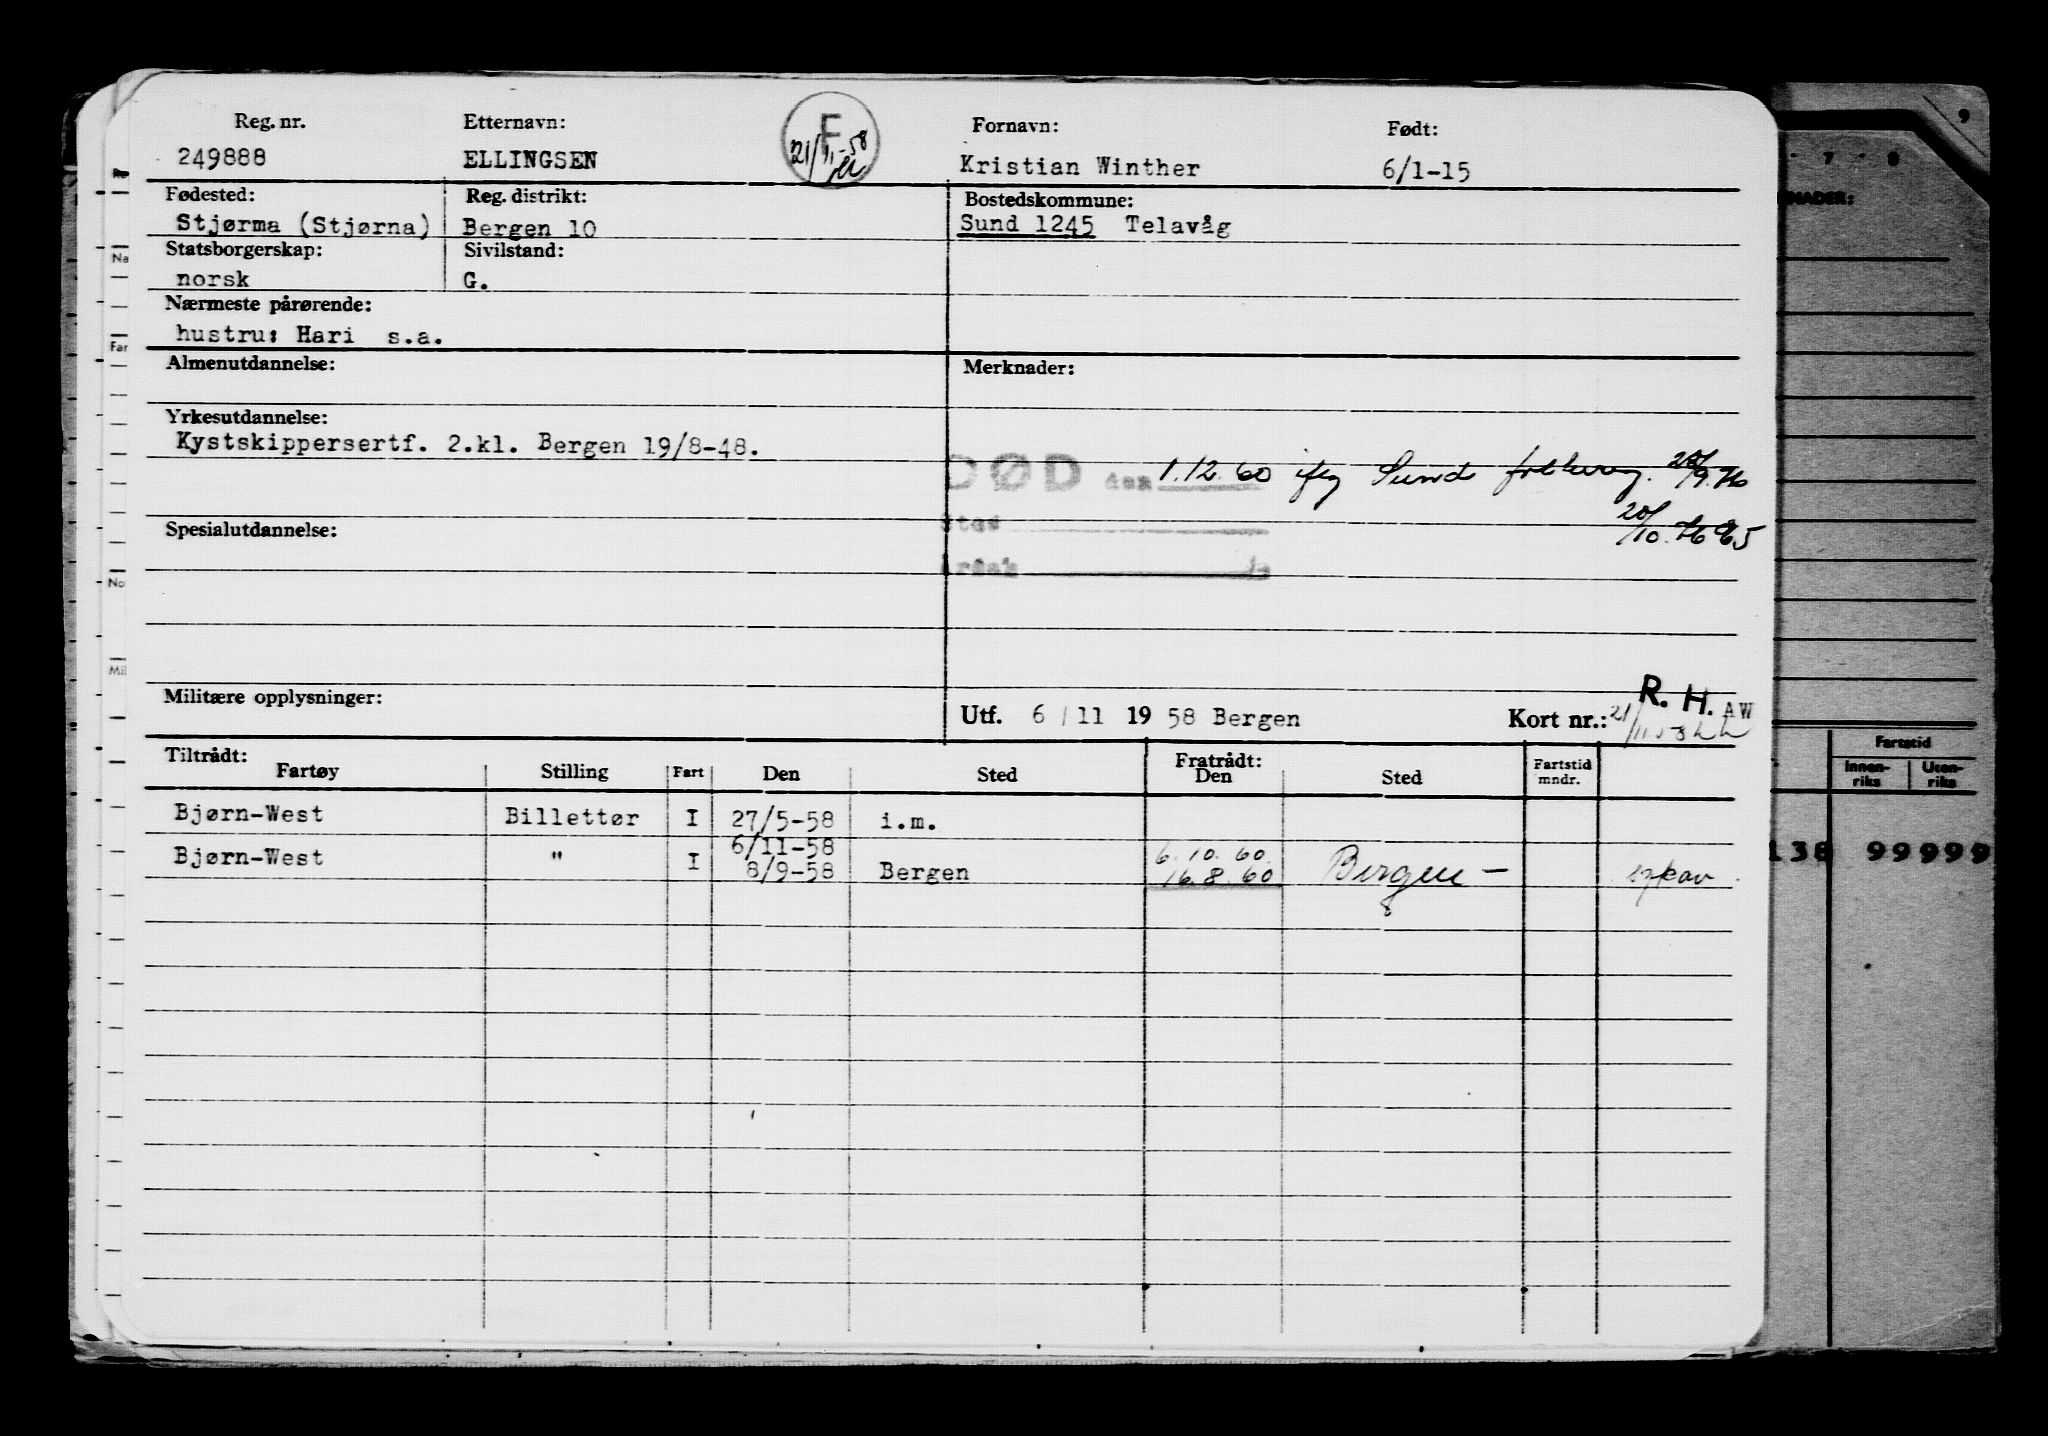 Reg. nr. Etternavn: F Fornavn: Født:
249888 ELLINGSEN 21/11-58 Kristian Winther 6/1-15
Fødested: Reg. distrikt: Bostedskommune:
Stjørma (Stjørna) Bergen 10 Sund 1245 Telavåg
Statsborgerskap: Sivilstand:
norsk G.
Nærmeste pårørende:
hustru: Hari s.a.
Almenutdannelse: Merknader:
Yrkesutdannelse:
Kystskippersertf. 2.kl. Bergen 19/8-48.
DØD den 1.12.60 ifg Sund folkereg.
20/10.
Spesialutdannelse:
Militære opplysninger:
R. H. AW
Utf. 6/11 1958 Bergen Kort nr.: 21/11-58
Tiltrådt: Fratrådt:
Fartøy Stilling Fart Den Sted Den Sted Fartstid mndr.
Bjørn-West Billettør I 27/5-58 i.m.
6/11-58 6.10.60.
Bjørn-West " I 8/9-58 Bergen 16.8.60 Bergen
9
7 - 8
NADER:
Fartstid
Innen-riks Uten-riks
138 99999
Na
Far
No
Mil